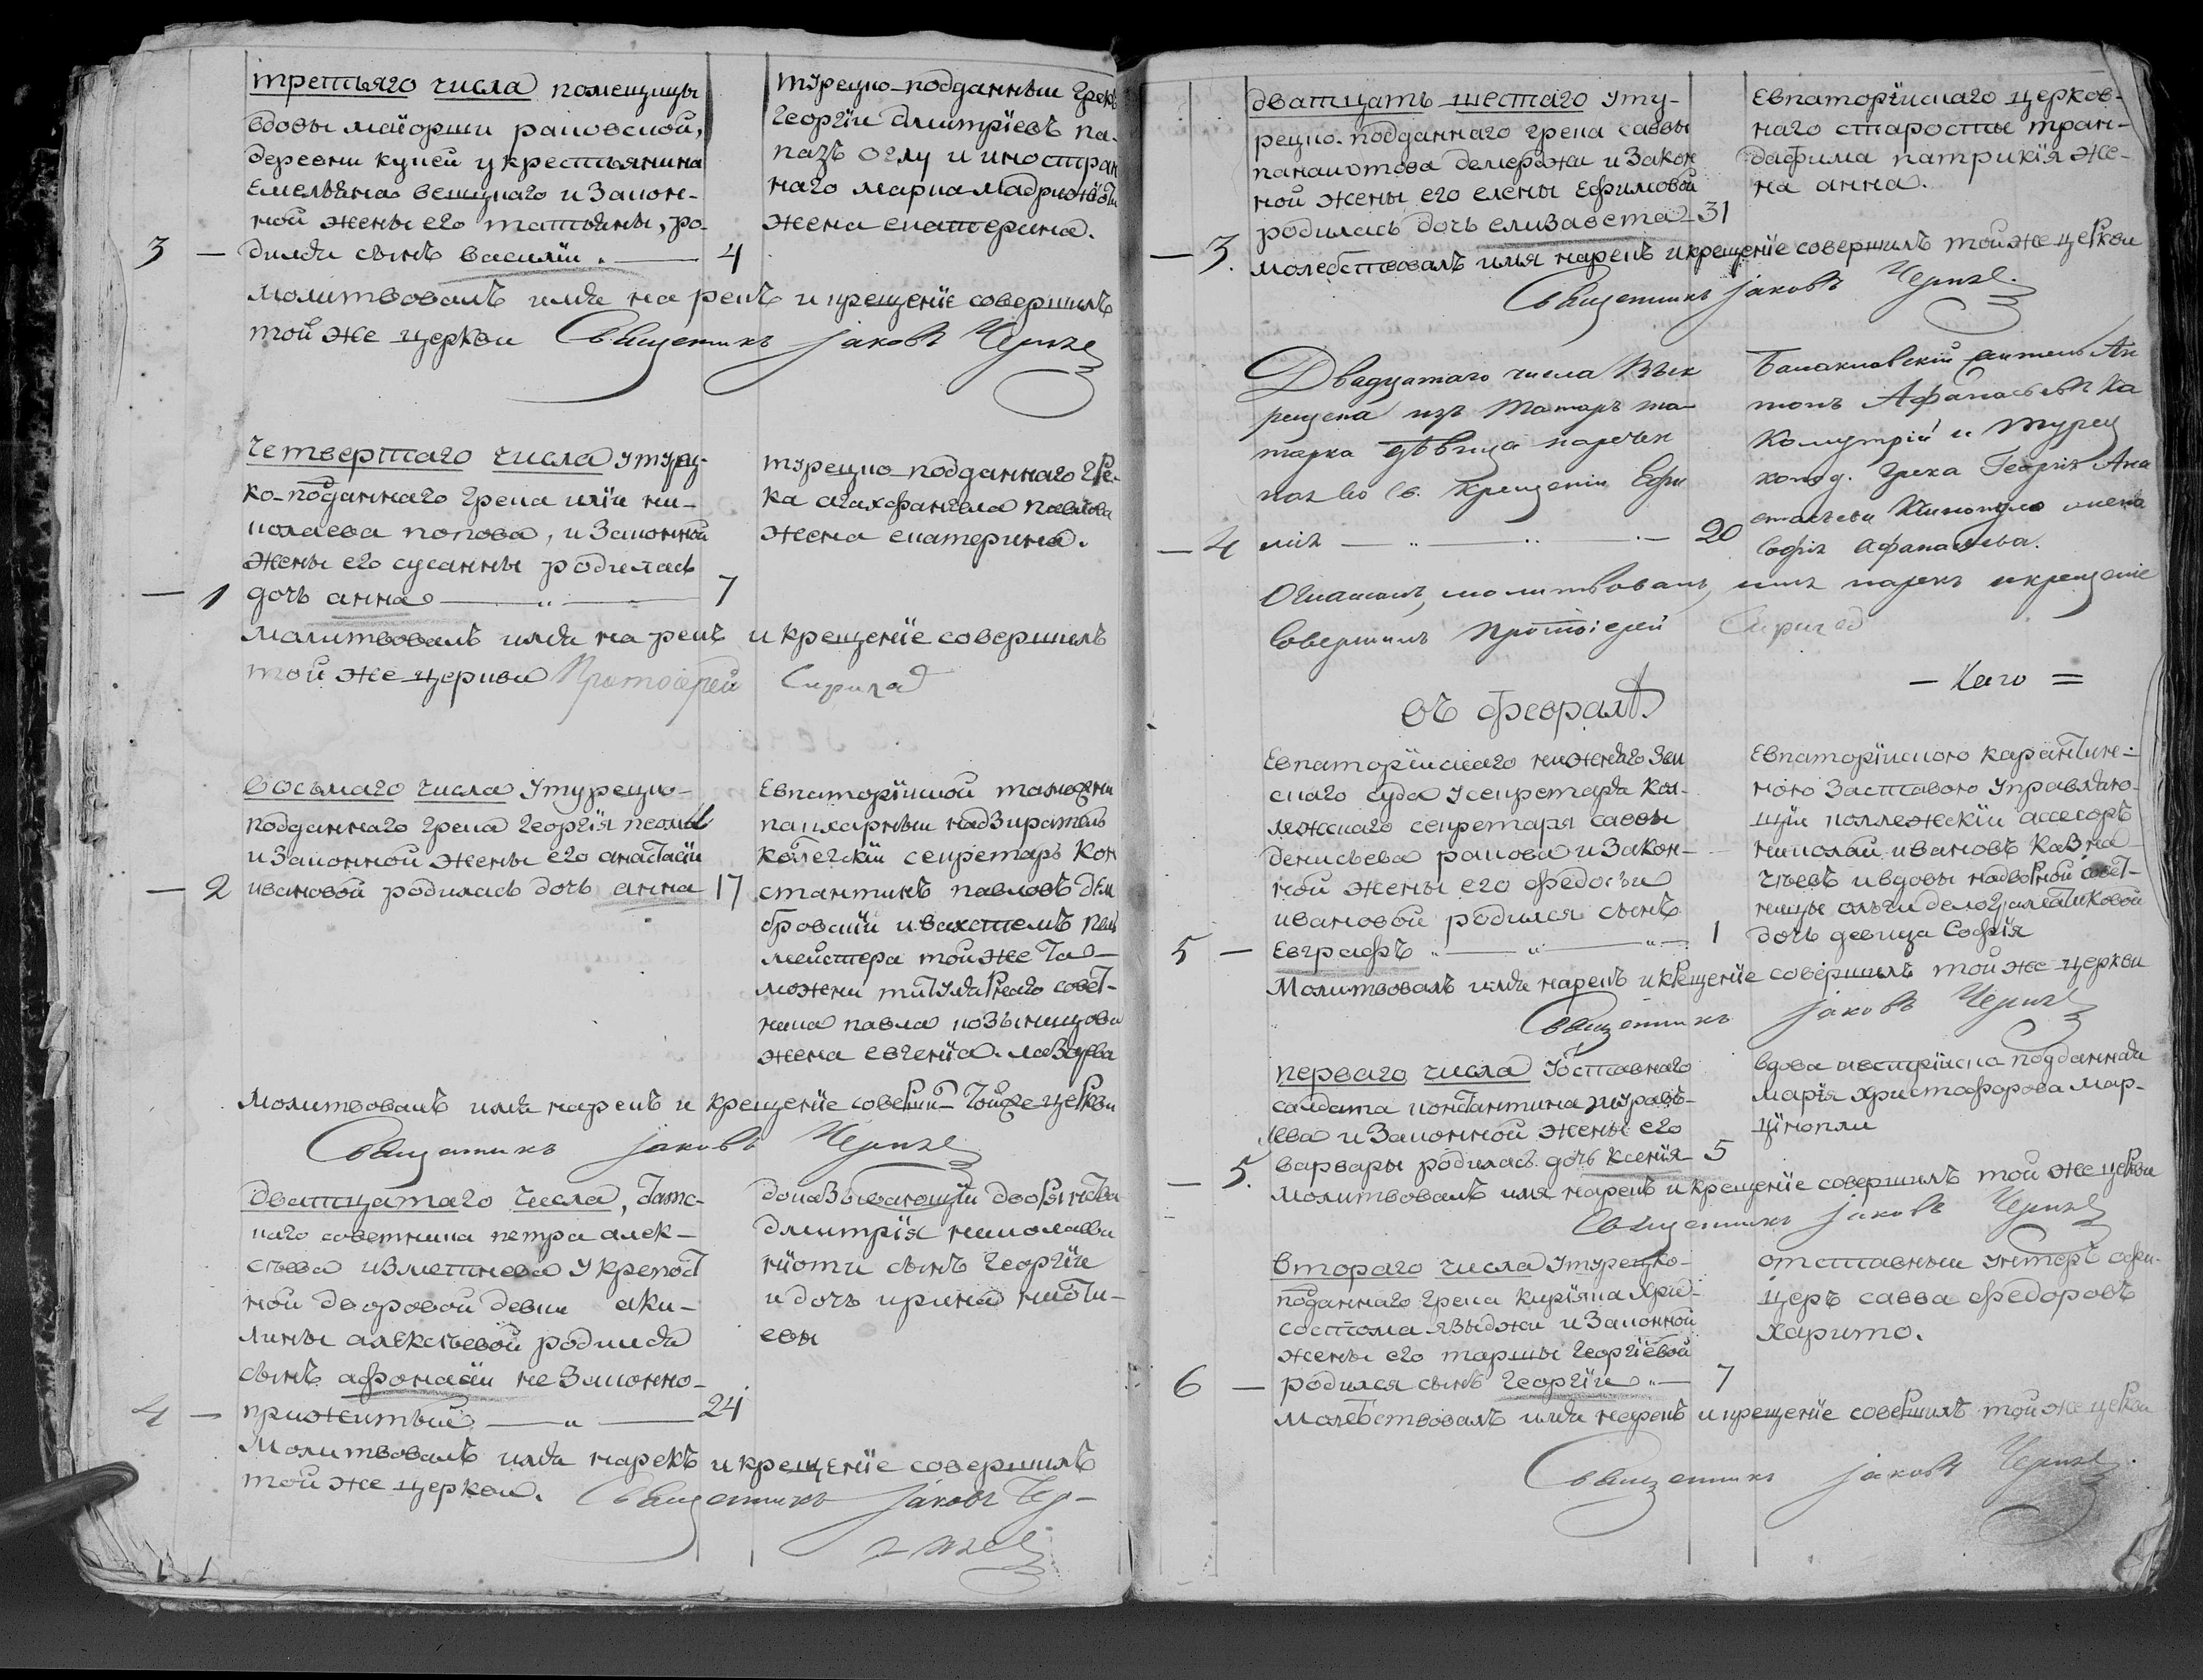 третьяго числа помещицы
вдовы маiорши раковской,
деревни кулей у крестьянина
Емельяна вещунаго и закон-
ной жены его татьяны, ро-
3 — дился сынъ василiи. — 4
турецко-подданныи Грекъ
георгiи дмитрiевъ па-
пазъ оглу и иностран
наго марка
жена екатерина.
молитвовалъ имя нарекъ и крещенiе совершилъ
той же церкви Священникъ Iаковъ
четвертаго числа у туре-
ко-подданнаго грека илiи ни-
колаева попова, и законной
жены его сусанны родилась
— 1 дочь анна — 7
турецко-подданнаго Гре-
ка агахфангела павлова
жена екатерина.
молитвовалъ имя нарекъ и крещенiе совершилъ
той же церкви Протоiерей
восьмаго числа у турецко-
подданнаго грека георгiя
и законной жены его анастасiи
— 2 ивановой родилась дочь анна 17
Евпаторiиской таможни
пакхаузныи надзиратель
колегскiи секретарь кон
стантинъ павловъ дем
бровскiи и вахстемъ пак
меистера той же та-
можни титулярнаго совет-
ника павла
жена евгенiа.
молитвовалъ имя нарекъ и крещенiе соверши- тойже церкви
Священникъ Iаковъ
дватцатаго числа, Стат-
скаго советника петра алек-
сеева у крепост
ной дворовой девки аки-
лины алексеевой родился
сынъ афонасiи не законно-
4 — прижитый — 24
доказывающiи дворянства
дмитрiя николаева
сынъ георгiи
и дочь ирина
евы
Молитвовалъ имя нарекъ и крещенiе совершилъ
той же церкви. Священникъ Iаковъ
дватцать шестаго у ту-
рецко-подданнаго грека саввы
панаиотова демержи и закон
ной жены его елены Ефимовой
родилась дочь елизавета — 31
Евпаторiискаго церков-
наго старосты тран-
дафила патрикiя же-
на анна.
— 3. молебствовалъ имя нарекъ и крещенiе совершилъ той же церкви
Священникъ Iаковъ
Двадцатаго числа Вык
рещена изъ Татаръ та-
тарка дѣвица наречен
ная во св. Крещенiи Ефи
— 4 мiя — 20
Балаклавскiй житель Ан
тонъ Афанасьевъ Ка
и Турец
копод. Грека Георгiя Ана
жена
Софiя Афанасьева.
Огласилъ, молитвовалъ, имя нарекъ и крещенiе
Совершилъ Протоiерей
въ февралѣ.
Евпаторiискаго нижняго зем
скаго суда у секретаря кол-
лежскаго секретаря саввы
денисьева ракова и закон-
ной жены его федосьи
ивановой родился сынъ
5 — Евграфъ — 1
Евпаторiискою карантин-
ною заставою управляю-
щiи коллежскiи ассесоръ
николаи ивановъ Казна-
чѣевъ и вдовы надворной совет-
ницы ольги
дочь девица Софiя
Молитвовалъ имя нарекъ и крещенiе совершилъ той же церкви
Священникъ Iаковъ
перваго числа у отставнаго
салдата константина журавъ-
лева и законной жены его
— 5. варвары родилась дочь ксенiя — 5
вдова австрiиско подданная
марiя христофорова мар-
Молитвовалъ имя нарекъ и крещенiе совершилъ той же церкви
Священникъ Iаковъ
втораго числа у турецко-
поданнаго грека кирiяка хри-
состома языджи и законной
жены его таршы георгiевой
6 — родился сынъ георгiи — 7
отставныи унтеръ офи-
церъ савва федоровъ
харито.
молебствовалъ имя нарекъ и крещенiе совершилъ той же церкви
Священникъ Iаковъ